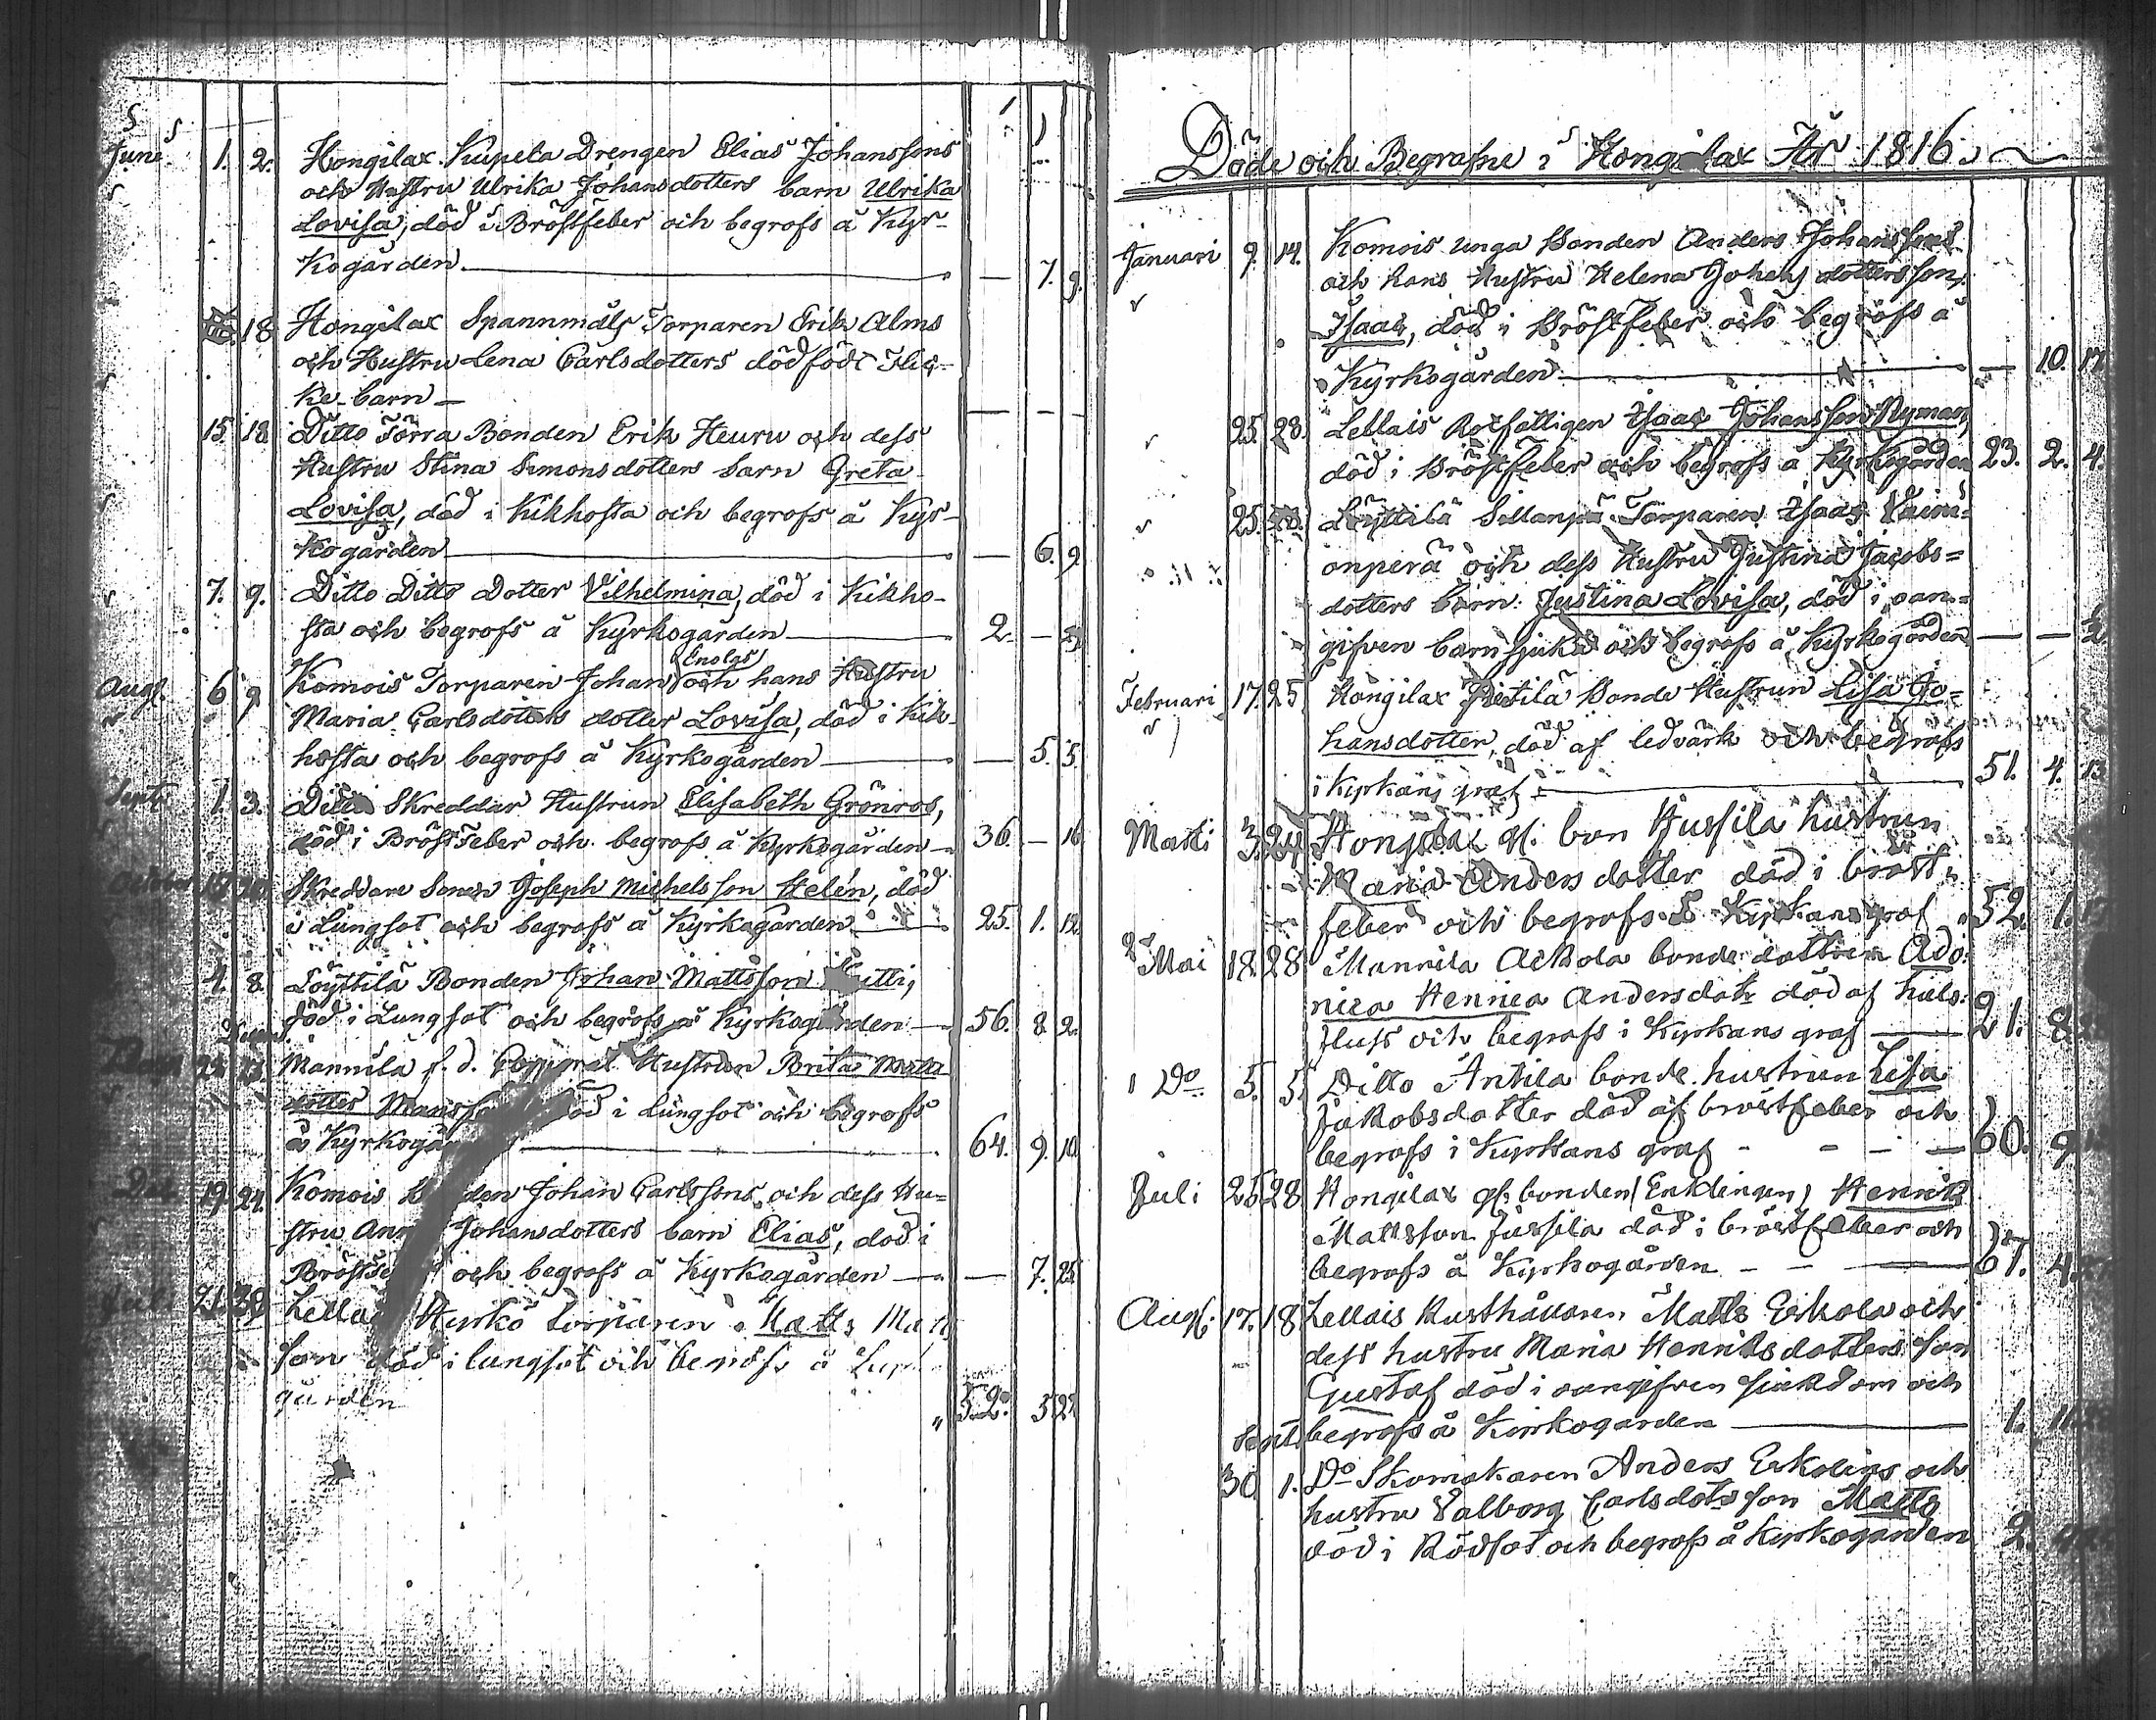 Juni 1. 2. Hongilax Kupeta Drengen Elias Johanssons
och Hustru Ulrika Johansdotters barn Ulrika
Lovisa, död i Bröstfeber och begrofs å Kyr-
kogården. — — 7. 9.
18 Hongilax Spannmåls Torparen Erik Alms
och Hustru Lena Carlsdotters dödfödt Flic-
ke-barn — — — —
15. 18 Ditto Torra Bonden Erik Heuru och dess
Hustru Stina Simonsdotters barn Greta
Lovisa, död i Kikhosta och begrofs å Kyr-
kogården — — 6. 9
7. 9. Ditto Ditto Dotter Vilhelmina, död i Kikho-
sta och begrofs å Kyrkogården — 2. —
Enolas
Aug. 6 9 Komois Torparen Johan och hans Hustru
Maria Carlsdotters dotter Lovisa, död i Kik-
hosta och begrofs å Kyrkogården — — 5. 5.
Sept. 1. 3. Ditto Skreddar Hustrun Elisabeth Grönros,
död i Bröstfeber och begrofs å Kyrkogården — 36. — 16
Skreddare Sonen Joseph Michelsson Helén, död
i Lungsot och begrofs å Kyrkogården — 25. 1. 12.
4. 8. Löyttilä Bonden Johan Mattsson
död i Lungsot och begrofs å Kyrkogården — 56. 8 2.
Decem.
Mannila f. d. Corporal Hustrun Brita Matts
dotter död i Lungsot och begrofs
å Kyrkogå — 64. 9. 10.
19. 24. Komois Johan Carlssons och dess Hu-
stru Anna Johansdotters barn Elias, död i
och begrofs å Kyrkogården — — 7. 25
21 30 Torparen Matts
son död i lungsot och å
gården " 52. 5 22

Döde och Begrafne i Hongilax År 1816.
Januari 9. 14. Komois unga Bonden Anders Johanssons
och hans Hustru Helena Johansdotters son
Isaac, död i Bröstfeber och begrofs å
Kyrkogården — — 10. 17.
25. 28. Lellais Rotfattigen Isaac Johansson Nyman,
död i Bröstfeber och begrofs å Kyrkogården 23. 2. 4.
25. Löyttilä Sillanpä Torparen Isaac
onperä och dess Hustru Justina Jacobs=
dotters barn Justina Lovisa, död i oan=
gifven barnsjukd och begrofs å Kyrkogården — —
Februari 17. 25 Hongilax Pietilä Bonde Hustrun Lisa Jo=
hansdotter, död af ledvärk och begrofs
i Kyrkans graf — 51. 4. 13
Marti 3. 24 Hongilax gl. bon Jussila hustrun
Maria Anders dotter död i bröst
feber och begrofs i Kyrkans graf 52. 1.
Mai 18. 28 Mannila Ackola bonde dottren Ado
nica Hennica Andersdotr död af huls
fluss och begrofs i Kyrkans graf — 21. 8
Do 5. 5. Ditto Antila bonde hustrun Lisa
Jakobsdotter död af bröstfeber och
begrofs i Kyrkans graf - - - — 60. 9
Juli 25 28 Hongilax gl. bonden (Enklingen) Henrik
Mattsson Jussila död i bröstfeber och
begrofs å Kyrkogården - - — 67. 4.
Aug. 17. 18 Lellais Rusthållaren Matts Erkola och
dess hustru Maria Henriksdotters son
Gustaf död i oangifven sjukdom och
Sept. begrofs å Kyrkogården — 1. 11
30 1. Do Skomakaren Anders Erkolins och
hustru Valborg Carlsdotr son Matts
död i Rödsot och begrofs å Kyrkogården 2.